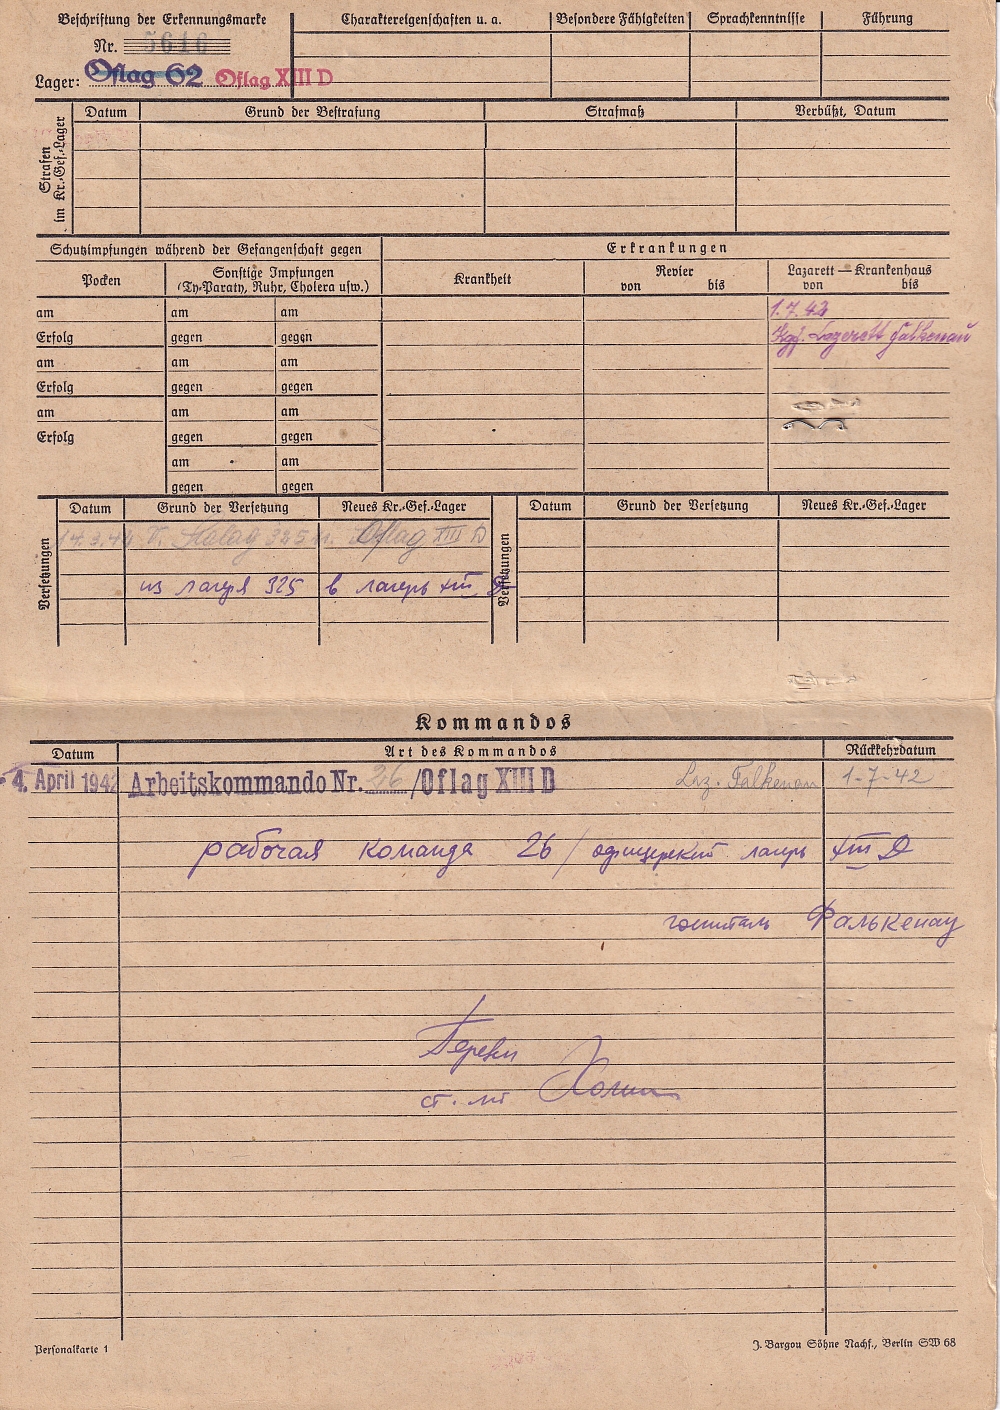 Beschriftung der Erkennungsmarke
Nr. 5616
Lager: Oflag 62 Oflag XIII D
Charaktereigenschaften u. a.
Besondere Fähigkeiten
Sprachkenntnisse
Führung
Strafen im Kr.-Gef.-Lager
Datum
Grund der Bestrafung
Strafmaß
Verbüßt, Datum
Schutzimpfungen während der Gefangenschaft gegen
Erkrankungen
Pocken
Sonstige Impfungen
(Ty-Paraty, Ruhr, Cholera usw.)
Krankheit
Revier
von bis
Lazarett — Krankenhaus
von bis
am am am
1.7.42
Erfolg gegen gegen
Kgf. Lazarett Falkenau
am am am
Erfolg gegen gegen
am am am
Erfolg gegen gegen
am am
gegen gegen
Versetzungen
Datum Grund der Versetzung Neues Kr.-Gef.-Lager
14.3.42 V. Stalag 325 n. Oflag XIII D
из лагеря 325 в лагерь XIII D
Versetzungen
Datum Grund der Versetzung Neues Kr.-Gef.-Lager
Kommandos
Datum Art des Kommandos Rückkehrdatum
4. April 1942 Arbeitskommando Nr. 26 /Oflag XIII D Laz. Falkenau 1-7-42
рабочая команда 26 / офицерский лагерь XIII D
госпиталь Фалькенау
Перевел
ст. л-т
Personalkarte 1
J. Bargou Söhne Nachf., Berlin SW 68